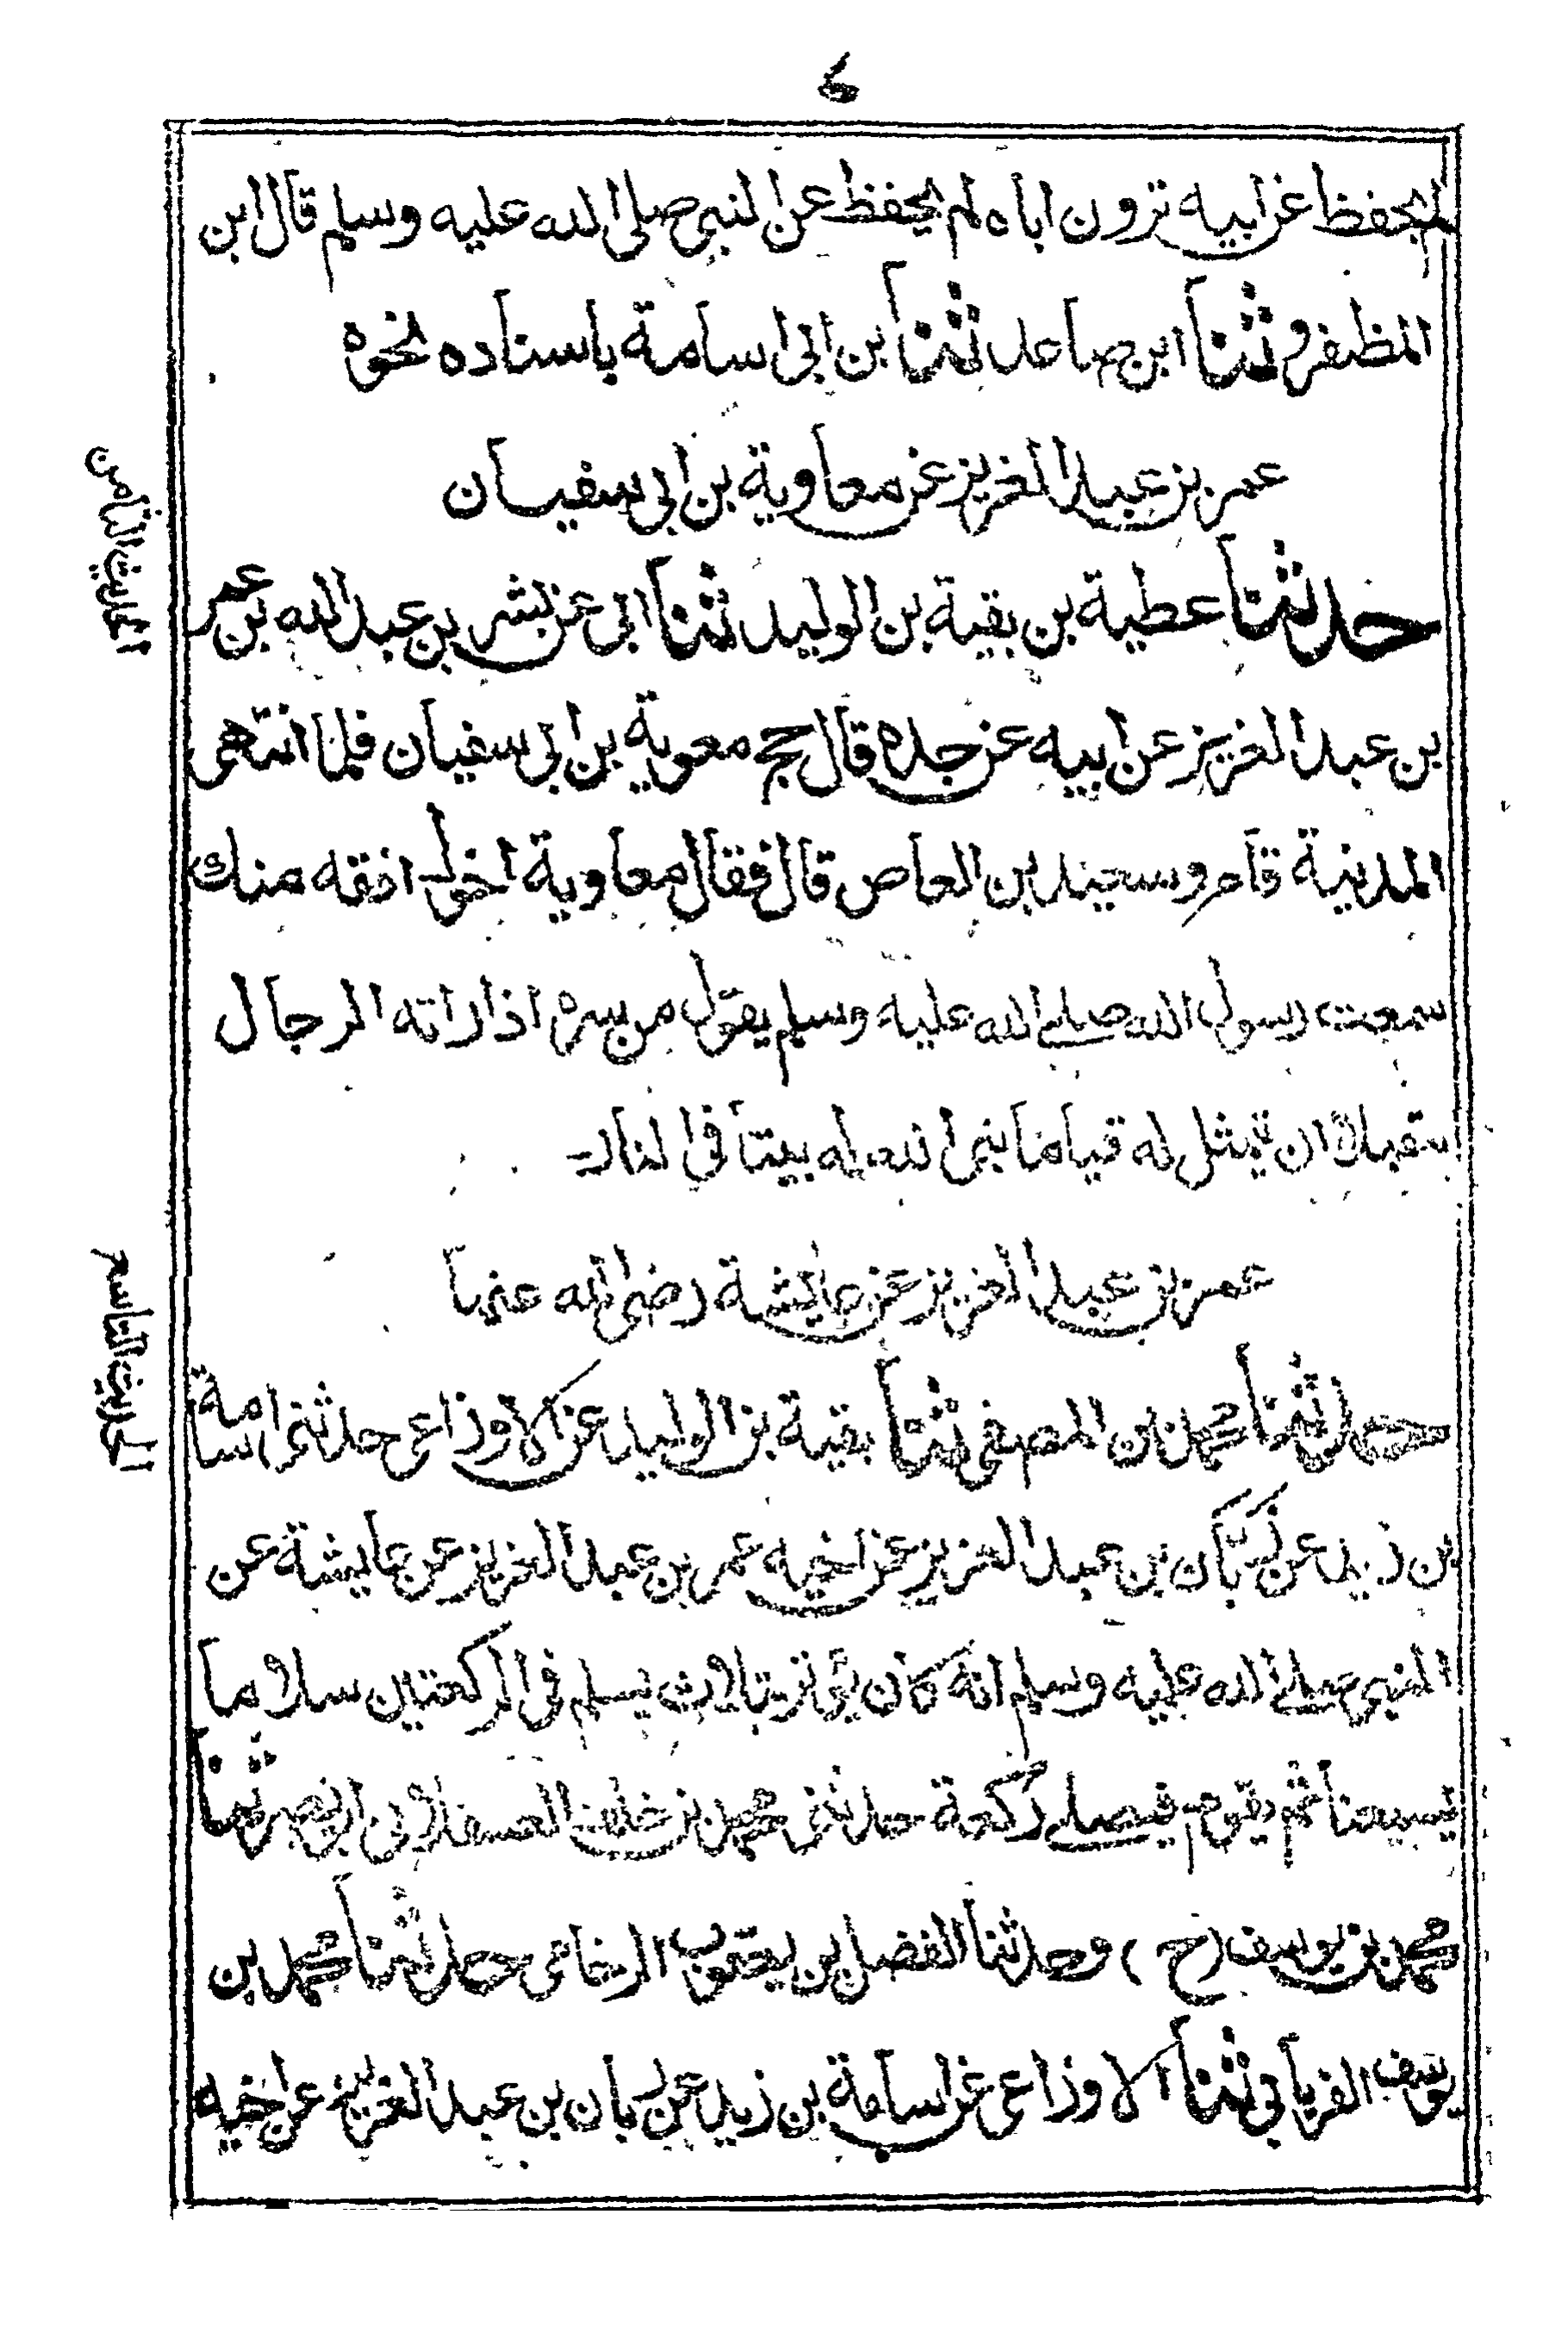 6
لم يحفظ عن ابيه ترون اباه لم يحفظ عن النبي صلى الله عليه وسلم قال ابن
المظفر و ثنا ابن صاعد ثنا ابن ابي اسامة باسناده نحوه
عمر بن عبد العزيز عن معاوية بن ابي سفيان
الحديث الثامن
حدثنا عطية بن بقية بن الوليد ثنا ابي عن بشر بن عبد الله بن عمر
بن عبد العزيز عن ابيه عن جده قال حج معوية بن ابي سفيان فلما انتهى
المدينة قام وسعيد بن العاص قال فقال معاوية اخولـ افقه منك
سمعت رسول الله صلے الله عليه وسلم يقول من سره اذا راته الرجال
مقبلا ان يمثل له قياما بنى الله له بيتا في النار
عمر بن عبد العزيز عن عايشة رضى الله عنها
الحديث التاسع
حدثنا محمد بن المصفى ثنا بقية بن الوليد عن الاوزاعى حدثنى اسامة
بن زيد عن زبّان بن عبد العزيز عن اخيه عمر بن عبد العزيز عن عايشة عن
النبى صلے الله عليه وسلم انه كان يوتر بثلاث يسلم فى الركعتين سلاما
يسمعنا ثم يقوم فيصلے ركعة حدثنى محمد بن خلف العسقلانى ابو نصر ثنا
محمد بن يوسف (ح) وحدثنا الفضل بن يعقوب الرخامى حدثنا محمد بن
يوسف الفريابي ثنا الاوزاعى عن اسامة بن زيد عن زبان بن عبد العزيز عن اخيه